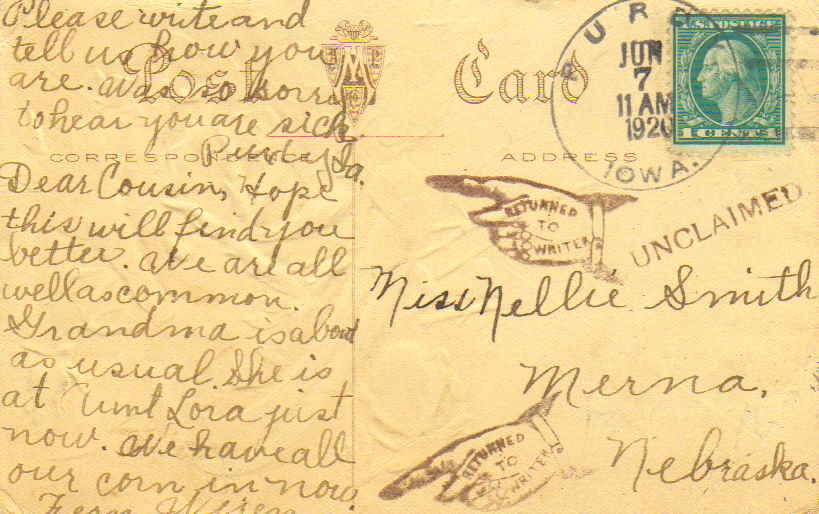 Please write and
tell us how you
are. Was so sorry
to hear you are sick
Post Card
CORRESPONDENCE
ADDRESS
Purdy, Ia.
Dear Cousin, Hope
this will find you
better. We are all
well as common.
Grandma is about
as usual. She is
at Aunt Lora just
now. We have all
our corn in now.
Fern
PURD
JUN
7
11 AM
1920
IOWA.
U.S. POSTAGE
1 CENT 1
RETURNED
TO
WRITER
UNCLAIMED
Miss Nellie Smith
Merna,
Nebraska.
RETURNED
TO
WRITER